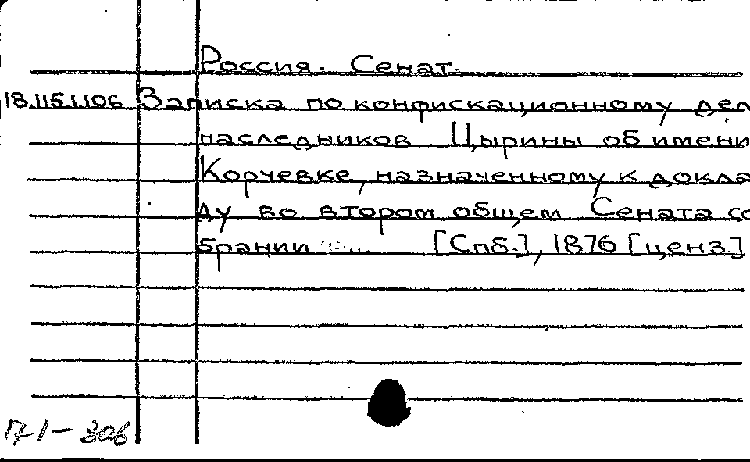 Россия. Сенат.
18.115.1.106 Записка по конфискационному дел
наследников Цырины об имени
Корчевке, назначенному к докла
ду во втором общем Сената со
брании [Спб.], 1876 [ценз.]
17-1-306